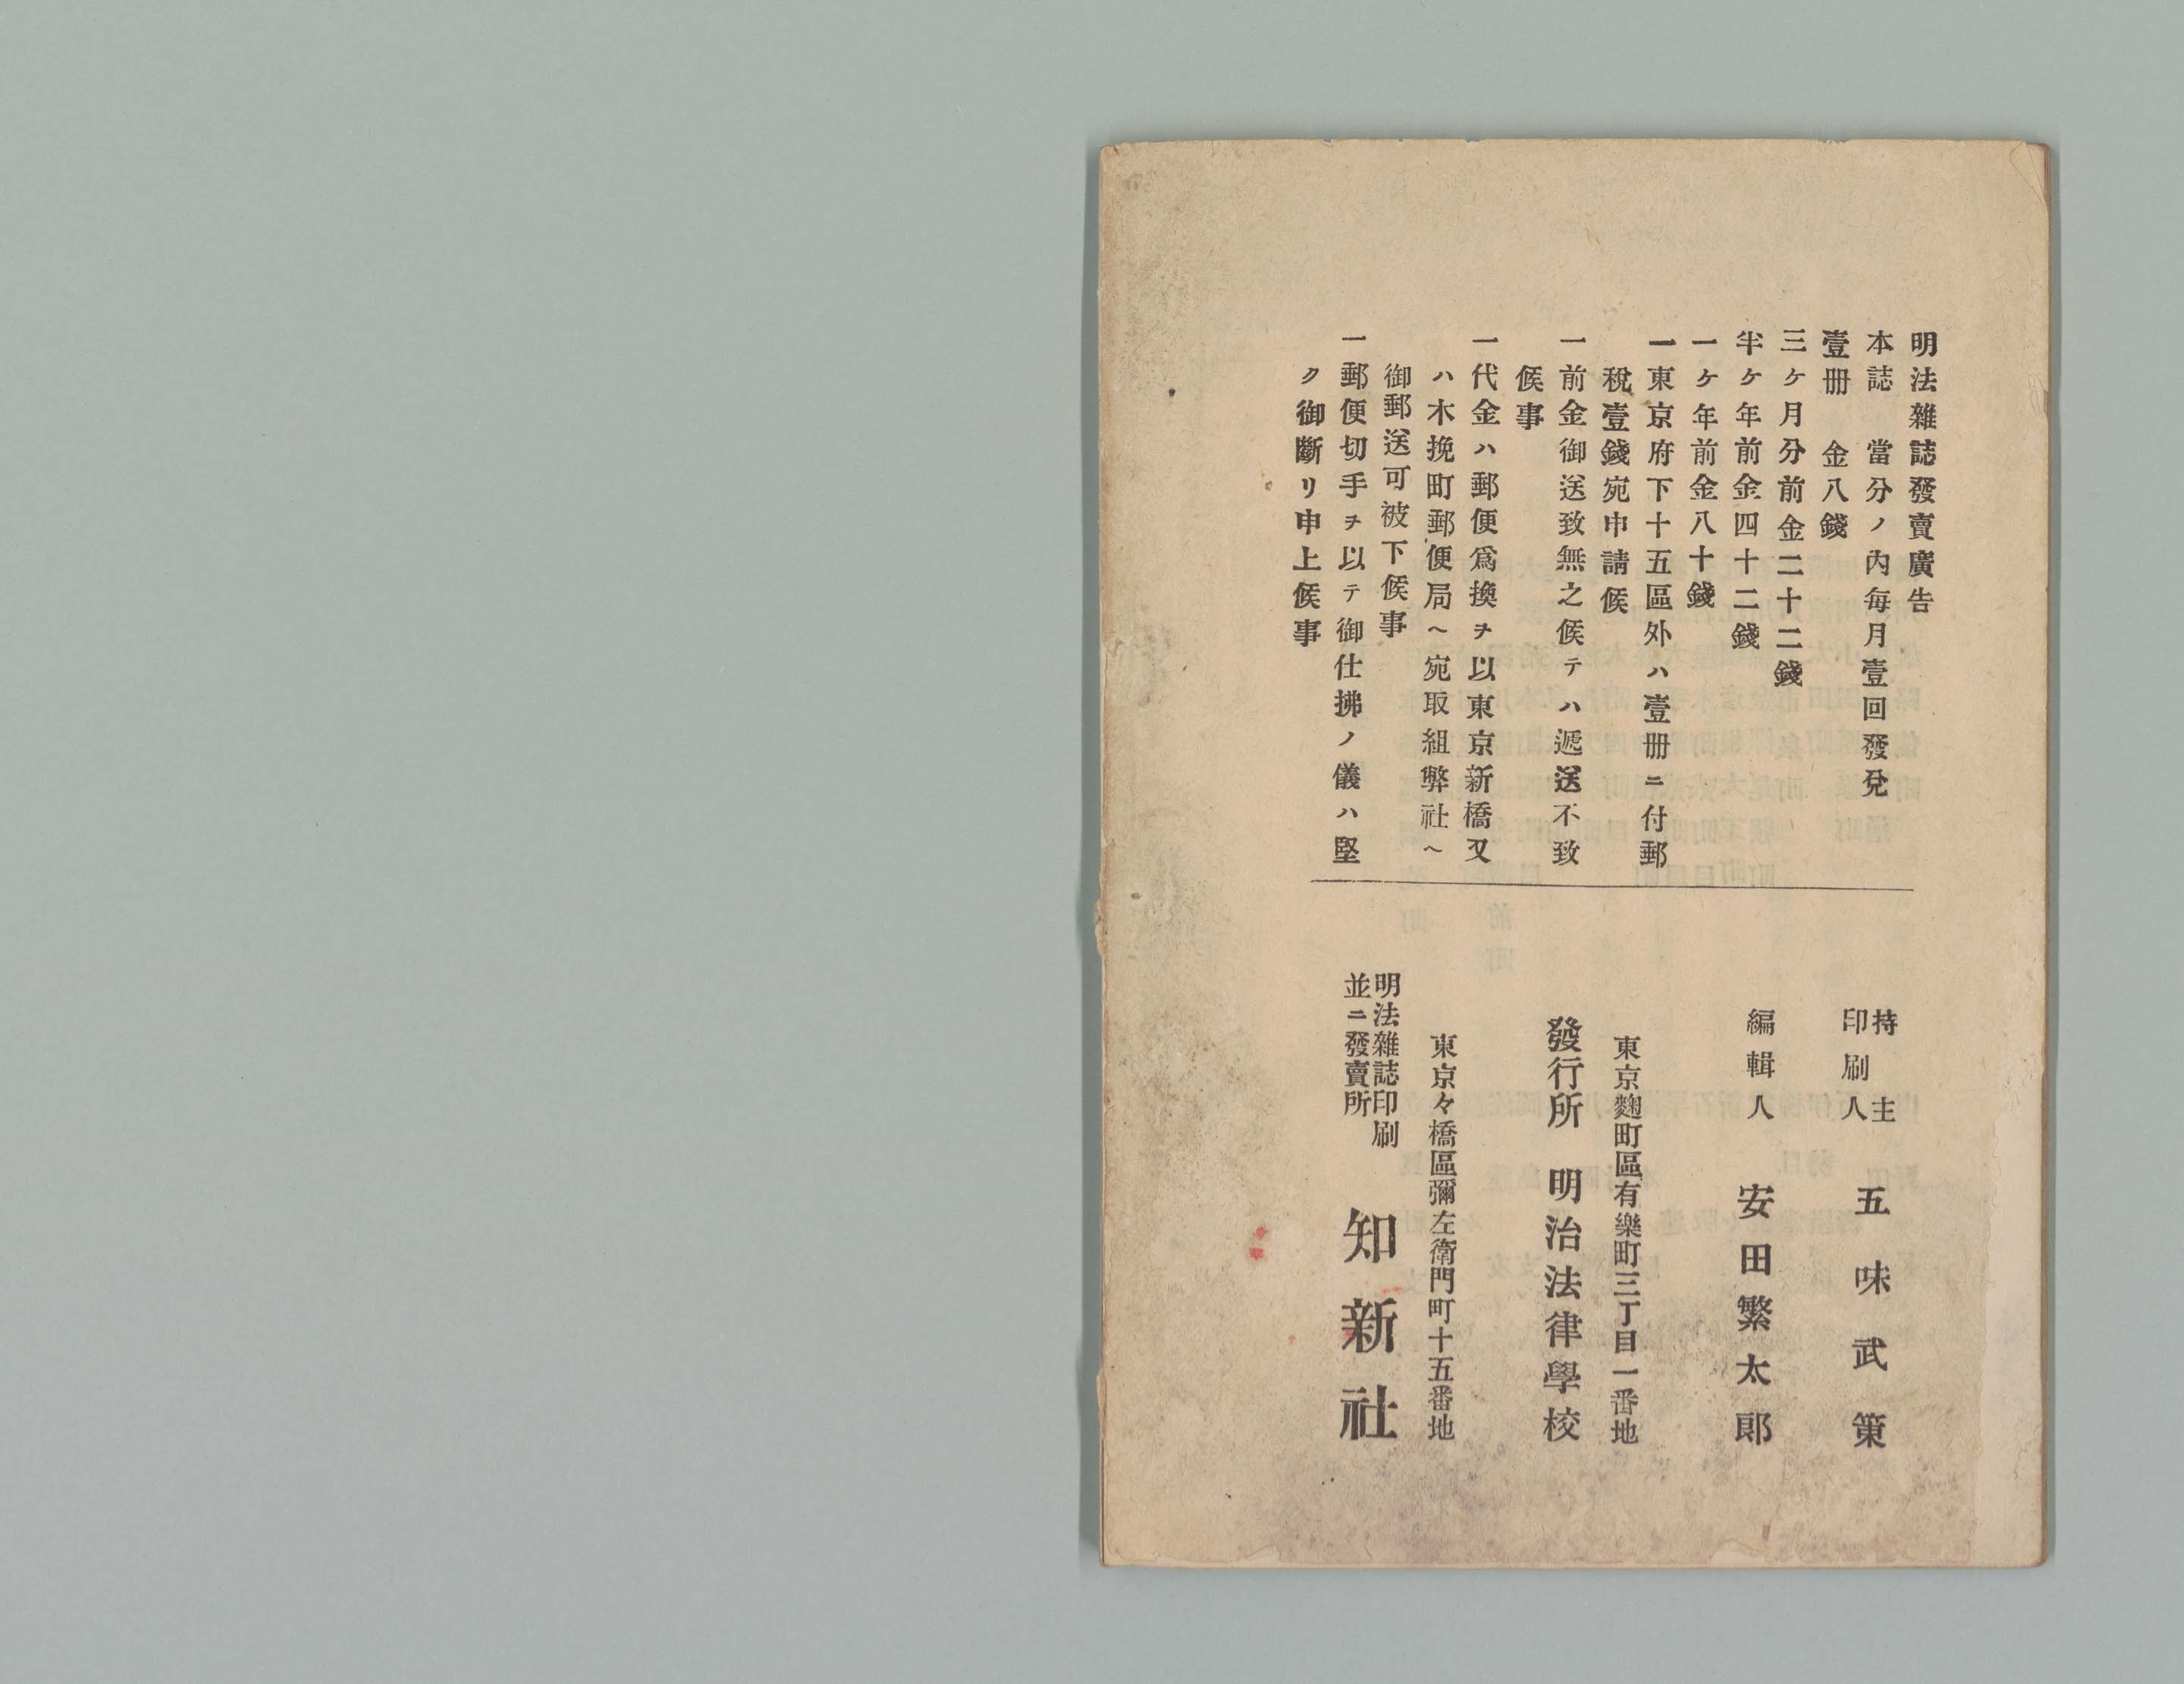 明法雜誌發賣廣告
本誌　當分ノ內每月壹回發兌
壹册　金八錢
三ケ月分前金二十二錢
半ケ年前金四十二錢
一ケ年前金八十錢
一東京府下十五區外ハ壹册ニ付郵
稅壹錢宛申請候
一前金御送致無之候テハ遞送不致
候事
一代金ハ郵便爲換ヲ以東京新橋又
ハ木挽町郵便局ヘ宛取組弊社ヘ
御郵送可被下候事
一郵便切手ヲ以テ御仕拂ノ儀ハ堅
ク御斷リ申上候事
持主
印刷人
五味武策
編輯人　安田繁太郎
東京麴町區有樂町三丁目一番地
發行所　明治法律學校
東京々橋區彌左衞門町十五番地
明法雜誌印刷
並ニ發賣所
知新社